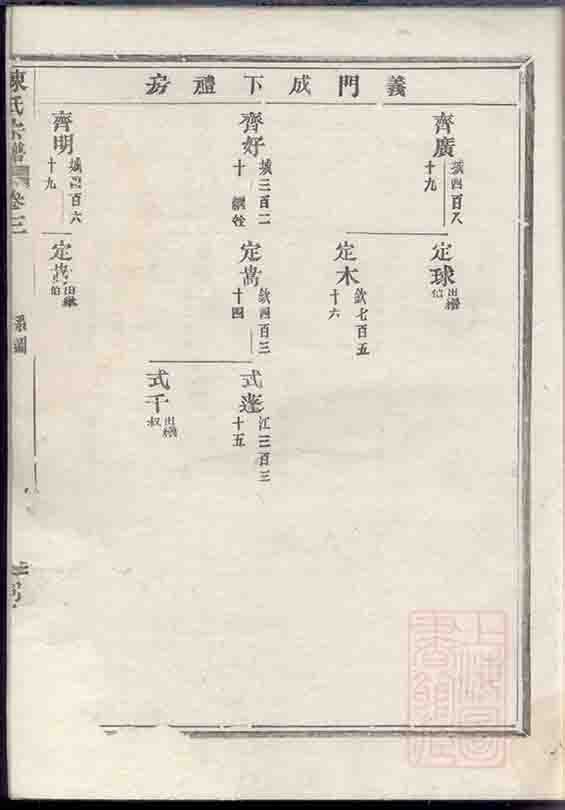 義門成下禮房
齊廣
城四百八
十九
定球
出繼
伯
定木
欽七百五
十六
齊好
城三百二
十 繼姪
定萬
欽四百三
十四
式蓬
江三百三
十五
式千
出繼
叔
齊明
城四百六
十九
定萬
出繼
伯
陳氏宗譜
卷三
系圖
上海圖
書館藏